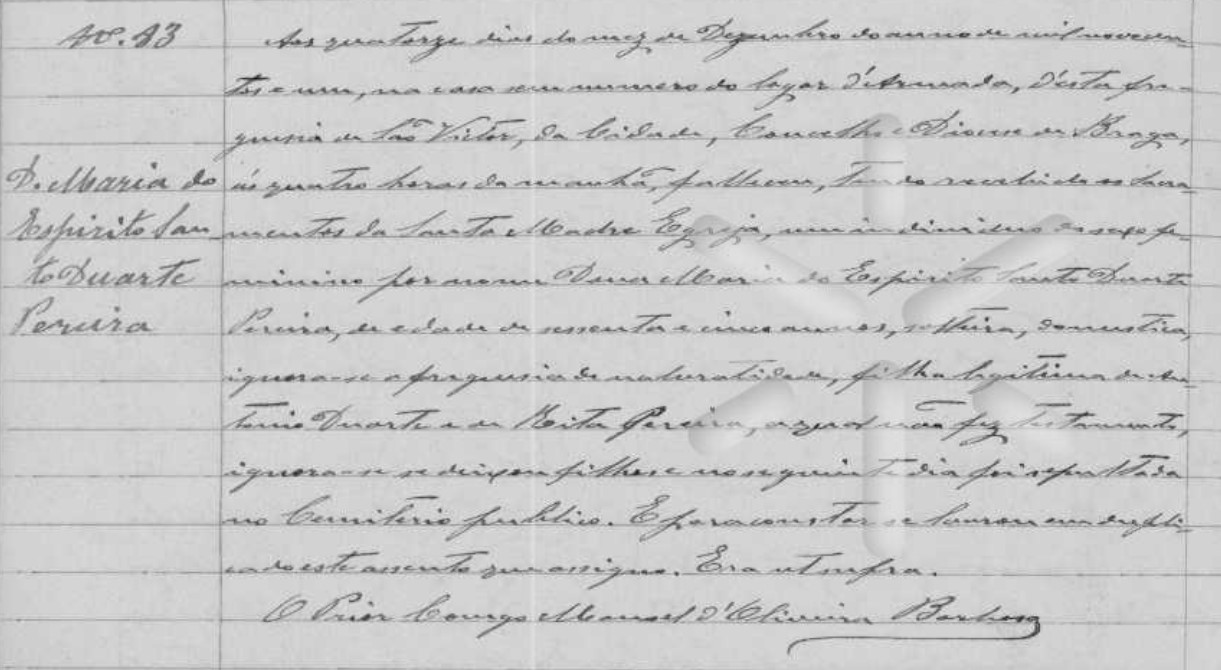 Nº. 83
D. Maria do
Espirito San
to Duarte
Pereira
Aos quatorze dias do mez de Dezembro do anno de mil novecen-
tos e um, na casa sem numero do logar d'Armada, d'esta fre-
guesia de São Victor, da Cidade, Concelho e Diocese de Braga,
ás quatro horas da manhã, falleceu, tendo recebido os Sacra-
mentos da Santa Madre Egreja, um individuo do sexo fe-
minino por nome Dona Maria do Espirito Santo Duarte
Pereira, de edade de sessenta e cinco annos, solteira, domestica,
ignora-se a freguesia de naturalidade, filha legitima de An-
tonio Duarte e de Rita Pereira, a qual não fez testamento,
ignora-se se deixou filhos e no seguinte dia foi sepultada
no Cemiterio publico. E para constar se lavrou em dupli-
cado este assento que assigno. Era ut supra.
O Prior Conego Manoel d'Oliveira Barbosa